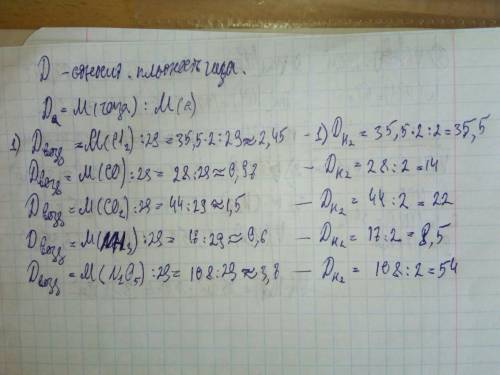 D - относит. плотность газа.
Dа = M(газа) : M(а)
1) Dвозд = M(Cl₂) : 29 = 35,5·2 : 29 ≈ 2,45 - 1) DH₂ = 35,5·2 : 2 = 35,5
Dвозд = M(CO) : 29 = 28 : 29 ≈ 0,97 — DH₂ = 28 : 2 = 14
Dвозд = M(CO₂) : 29 = 44 : 29 ≈ 1,5 — DH₂ = 44 : 2 = 22
Dвозд = M(NH₃) : 29 = 17 : 29 ≈ 0,6 — DH₂ = 17 : 2 = 8,5
Dвозд = M(N₂O₅) : 29 = 108 : 29 ≈ 3,8 — DH₂ = 108 : 2 = 54